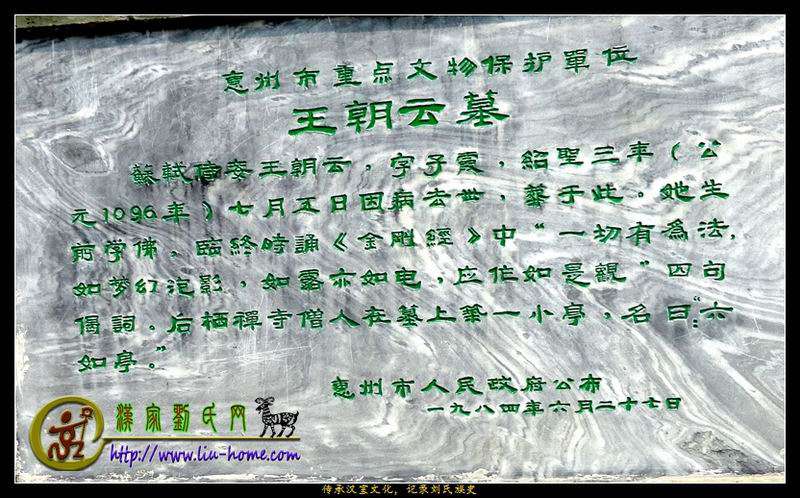 惠州市重点文物保护單位
王朝云墓
蘇軾侍妾王朝云，字子霞，紹聖三年（公
元1096年）七月五日因病去世，墓于此。她生
前学佛，臨終時誦《金剛經》中“一切有為法，
如梦幻泡影，如露亦如电，应作如是觀”四句
偈詞。后栖禪寺僧人在墓上筑一小亭，名曰“六
如亭。”
惠州市人民政府公布
一九八四年六月二十七日
漢家劉氏网
http://www.liu-home.com
传承汉室文化，记录刘氏族史